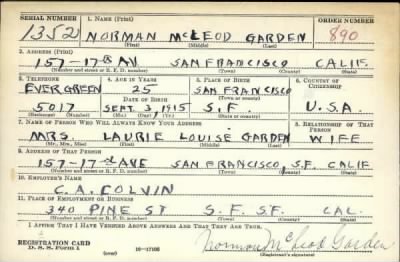 SERIAL NUMBER 1. NAME (Print) ORDER NUMBER
1352 NORMAN McLEOD GARDEN 890
(First) (Middle) (Last)
2. ADDRESS (Print)
157-17th AV SAN FRANCISCO CALIF.
(Number and street or R. F. D. number) (Town) (County) (State)
3. TELEPHONE 4. AGE IN YEARS 5. PLACE OF BIRTH 6. COUNTRY OF CITIZENSHIP
EVERGREEN 25 SAN FRANCISCO
DATE OF BIRTH (Town or county)
5017 SEPT. 3, 1915 S.F. U.S.A.
(Exchange) (Number) (Mo.) (Day) (Yr.) (State or country)
7. NAME OF PERSON WHO WILL ALWAYS KNOW YOUR ADDRESS 8. RELATIONSHIP OF THAT PERSON
MRS. LAURIE LOUISE GARDEN WIFE
(Mr., Mrs., Miss) (First) (Middle) (Last)
9. ADDRESS OF THAT PERSON
157-17th AVE SAN FRANCISCO, S.F. CALIF
(Number and street or R. F. D. number) (Town) (County) (State)
10. EMPLOYER'S NAME
C. A. COLVIN
11. PLACE OF EMPLOYMENT OR BUSINESS
340 PINE ST S. F. S.F. CAL.
(Number and street or R. F. D. number) (Town) (County) (State)
I AFFIRM THAT I HAVE VERIFIED ABOVE ANSWERS AND THAT THEY ARE TRUE.
REGISTRATION CARD Norman McLeod Garden
D. S. S. Form 1 (over) (Registrant's signature)